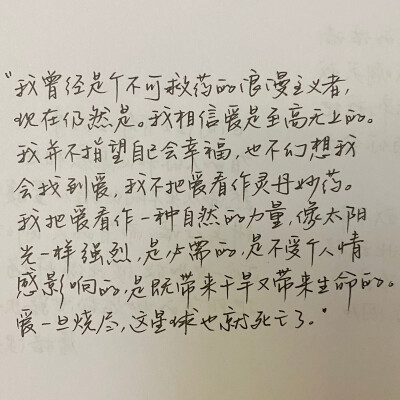 “我曾经是个不可救药的浪漫主义者，
现在仍然是。我相信爱是至高无上的。
我并不指望自己会幸福，也不幻想我
会找到爱，我不把爱看作灵丹妙药。
我把爱看作一种自然的力量，像太阳
光一样强烈，是必需的，是不受个人情
感影响的，是既带来干旱又带来生命的。
爱一旦烧尽，这星球也就死亡了。”